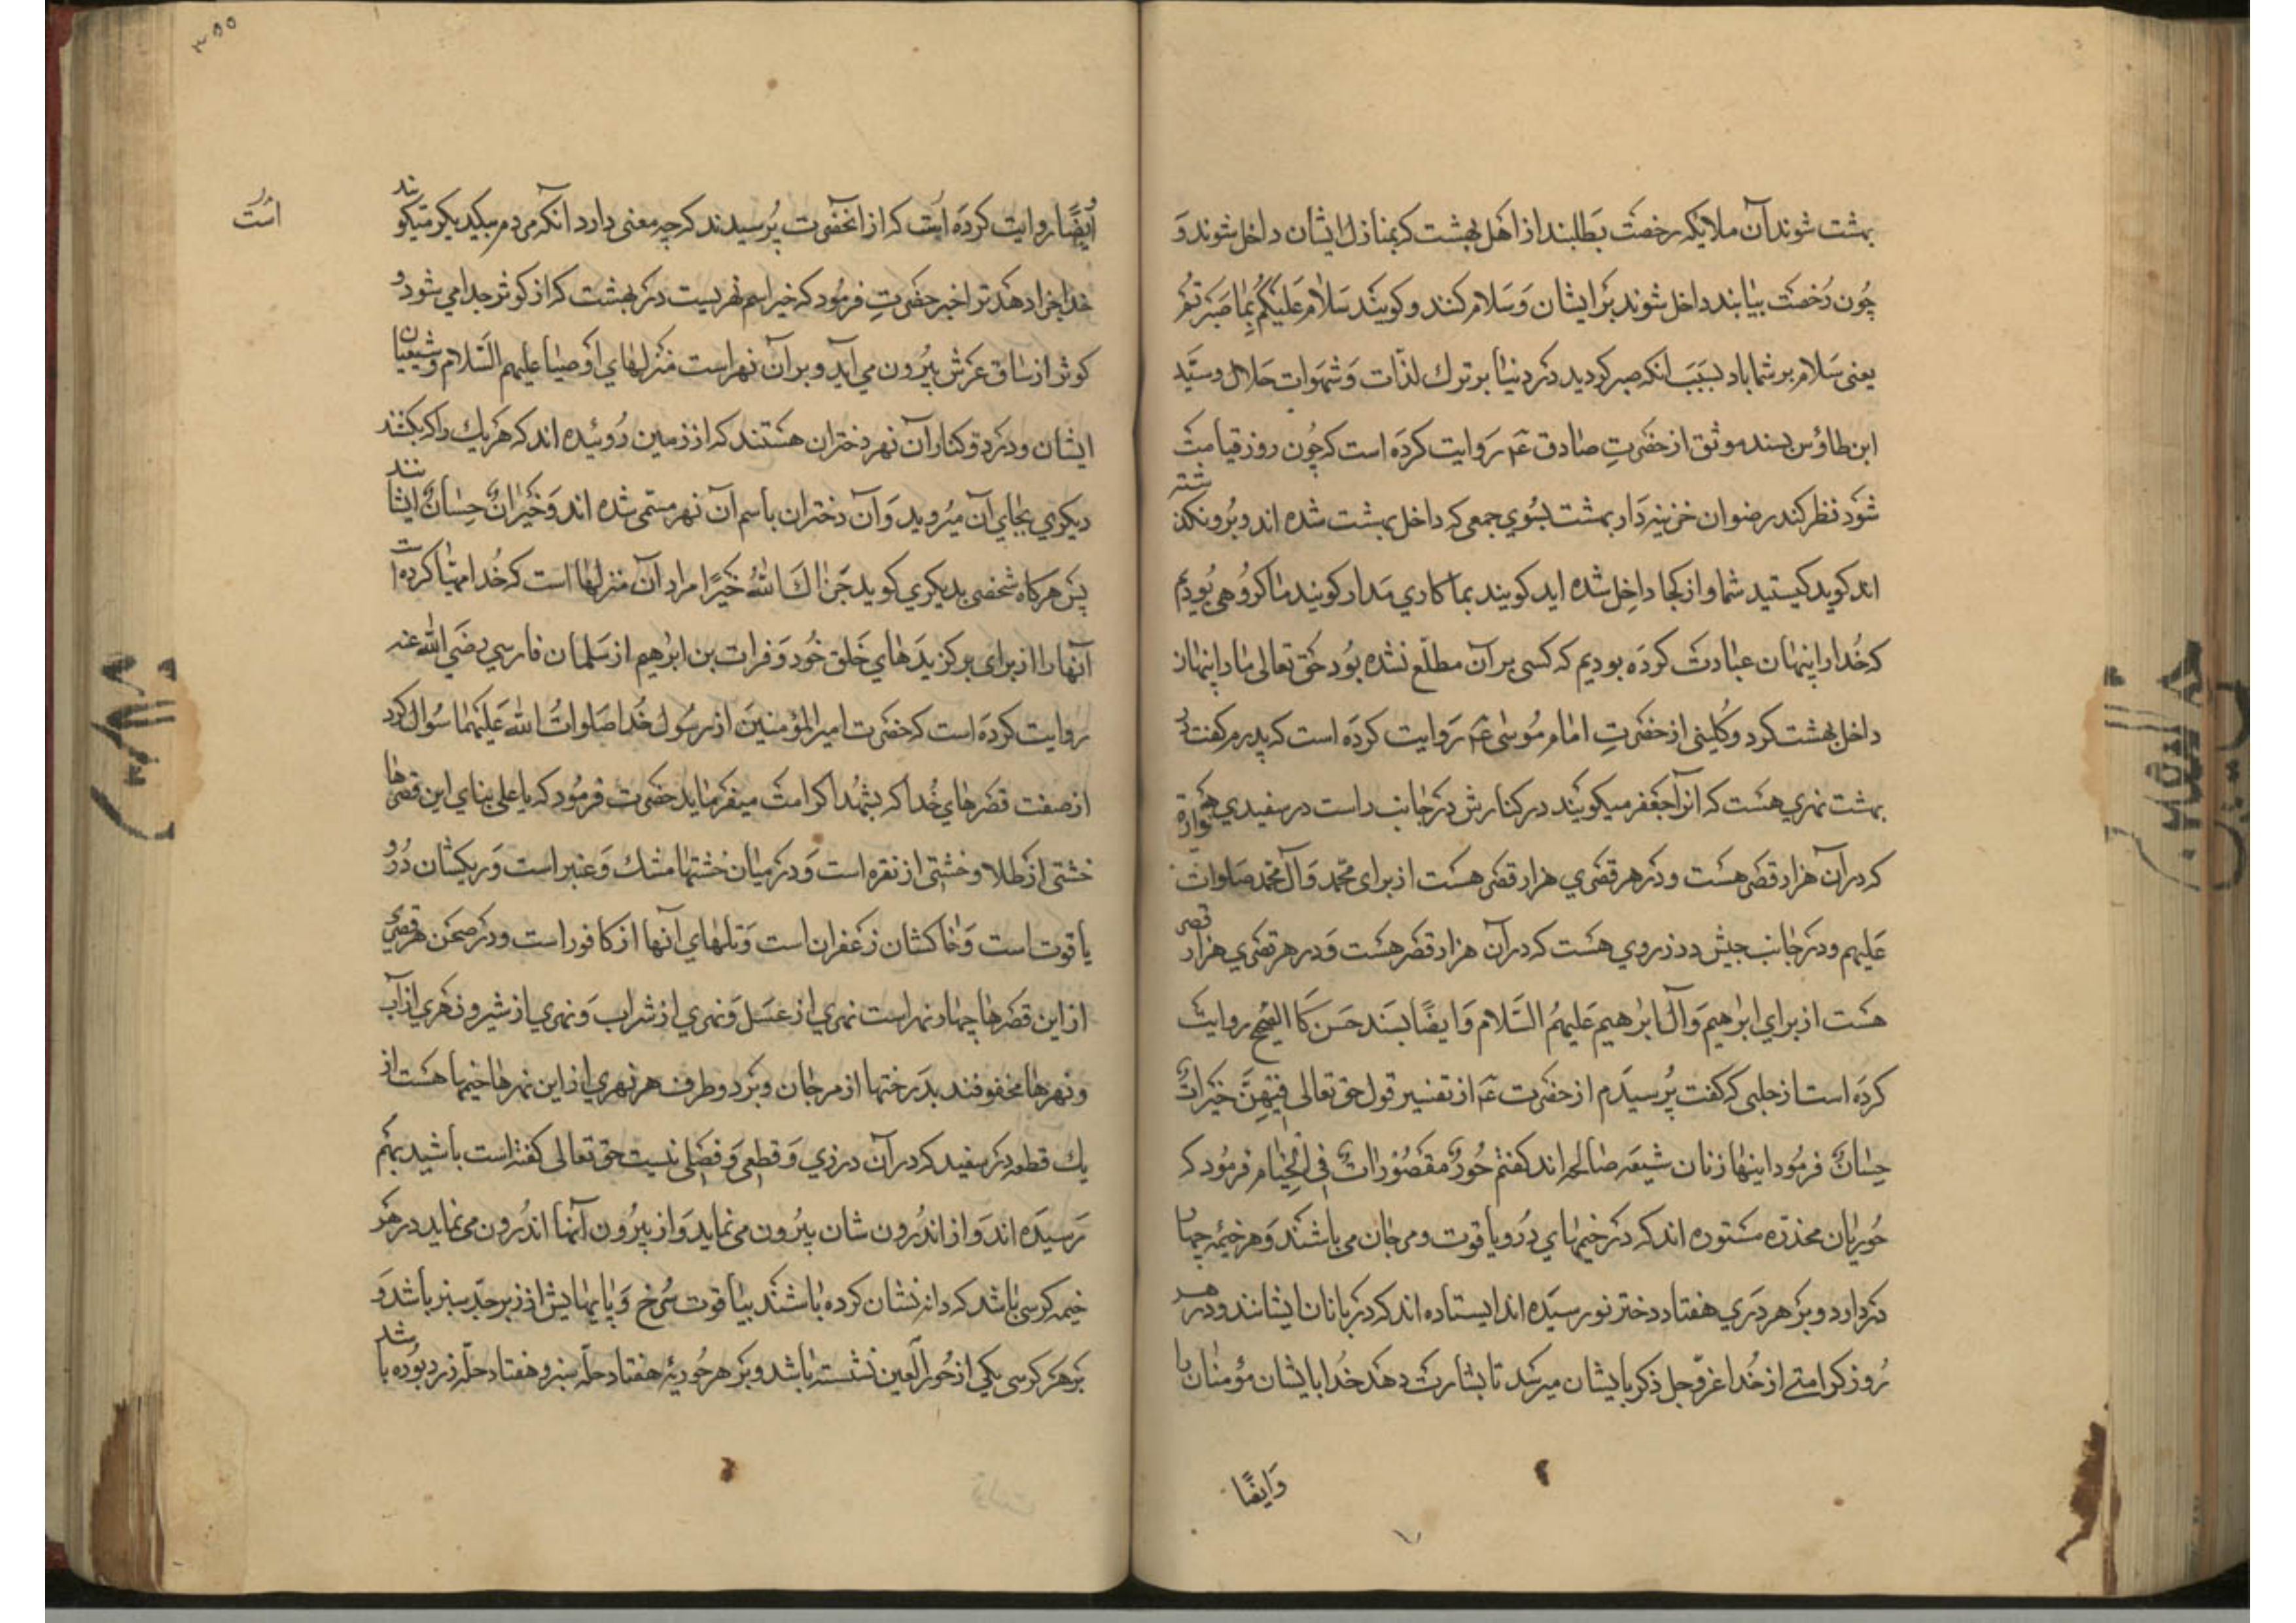 بهشت شوند آن ملایکه رخصت بطلبند از اهل بهشت که بمنازل ایشان داخل شوند و
چون رخصت بیابند داخل شوند بر ایشان و سلام کنند و کویند سلام علیکم بما صبرتم
یعنی سلام بر شما باد بسبب انکه صبر کردید در دنیا بر ترك لذّات و شهوات حلال و سیّد
ابن طاوس بسند موثق از حضرتِ صادق عم روایت کرده است که چون روز قیامت
شود نظر کند رضوان خزینه دار بهشت بسوي جمعی که داخل بهشت شده اند و برو نکذشته
اند کوید کیستید شما و از کجا داخل شده اید کویند بما کاري مدار کویند ما کروهی بودیم
که خدا را پنهان عبادت کرده بودیم که کسی بر آن مطلّع نشده بود حق تعالی ما را پنهان
داخل بهشت کرد و کلینی از حضرتِ امام موسی عم روایت کرده است که پدرم کفت در
بهشت نهري هست که انرا جعفر میکویند در کنارش در جانب راست در سفیدي هست
که در آن هزار قصر هست و در هر قصري هزار قصر هست از برای محمّد و آل محمّد صلوات
علیهم و در جانب چپش در زردي هست که در آن هزار قصر هست و در هر قصري هزار قصر
هست از براي ابرٰهیم و آل ابرٰهیم علیهم السّلام و ایضًا بسند حسن کالصحیح روایت
کرده است از حلبی که کفت پرسیدم از حضرت عم از تفسیر قول حق تعالی فیهنّ خیراتٌ
حسانٌ فرمود اینها زنان شیعه صالحه اند کفتم حورٌ مقصوراتٌ في الخیام فرمود که
حوریان مخدّره مستوره اند که در خیمهاي در و یاقوت و مرجان می باشند و هر خیمه چهار
در دارد و بر هر دري هفتاد دختر نورسیده اند ایستاده اند که دربانان ایشانند و در هر
روز کرامتے از خدا عزّ و جل ذکره بایشان میرسد تا بشارت دهد خدا بایشان مؤمنان را
وَایضًا
٣٥٥
ایضًا روایت کرده است که از انحضرت پرسیدند که چه معنی دارد انکه مردم بیکدیکر میکویند
خدا جزا دهد ترا خیر حضرتِ فرمود که خیر اسم نهریست در بهشت که از کوثر جدا می شود و
کوثر از ساق عرش بیرون می آید و بر آن نهر است منزلهاي اوصیا علیهم السّلام و شیعیان
ایشان و در دو کنار آن نهر دختران هستند که از زمین روئیده اند که هر یك را که بکنند
دیکري بجاي آن میروید و آن دختران باسم آن نهر مسمّی شده اند و خیراتٌ حسانٌ ایشانند
پس هرکاه شخصی بدیکري کوید جزاك الله خیرًا مراد آن منزلها است که خدا مهیّا کرده است
آنها را از برای برکزیدهاي خلق خود و فرات بن ابرٰهیم از سلمان فارسي رضي الله عنه
روایت کرده است که حضرت امیر المؤمنین از رسول خدا صلوات الله علیهما سؤال کرد
از صفت قصرهاي خدا که بشهدا کرامت میفرماید حضرت فرمود که یا علی بناي این قصرها
خشتی از طلا و خشتی از نقره است و در میان خشتها مشك و عنبر است و ریکشان درّ و
یاقوت است و خاکشان زعفران است و تلهاي آنها از کافور است و در صحن هر قصري
از این قصرها چهار نهر است نهري از عسل و نهري از شراب و نهري از شیر و نهري از آب
و نهرها محفوفند بدرختها از مرجان و بر دو طرف هر نهري از این نهرها خیمها هست از
یك قطعه در سفید که در آن درزي و قطعی و فصلی نیست حق تعالی کفته است باشید بهم
رسیده اند و از اندرون شان بیرون می نماید و از بیرون آنها اندرون می نماید در هر
خیمه کرسی باشد که دانه نشان کرده باشند بیاقوت سرخ و پایهایش از زبرجد سبز باشد و
بر هر کرسی یکی از حور العین نشسته باشد و بر هر حوریه هفتاد حلّه سبز و هفتاد حلّه زرد بوده باشد
است